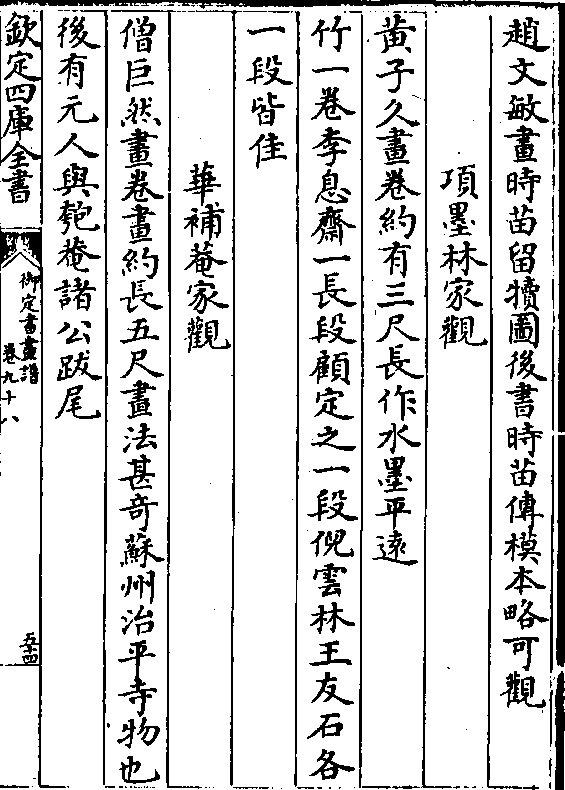 趙文敏畫時苗留犢圖後書時苗傳模本略可觀
項墨林家觀
黃子久畫卷約有三尺長作水墨平遠
竹一卷李息齋一長段顧定之一段倪雲林王友石各
一段皆佳
華補菴家觀
僧巨然畫卷畫約長五尺畫法甚奇蘇州治平寺物也
後有元人與匏菴諸公跋尾
欽定四庫全書
御定書畫譜
卷九十八
五十四